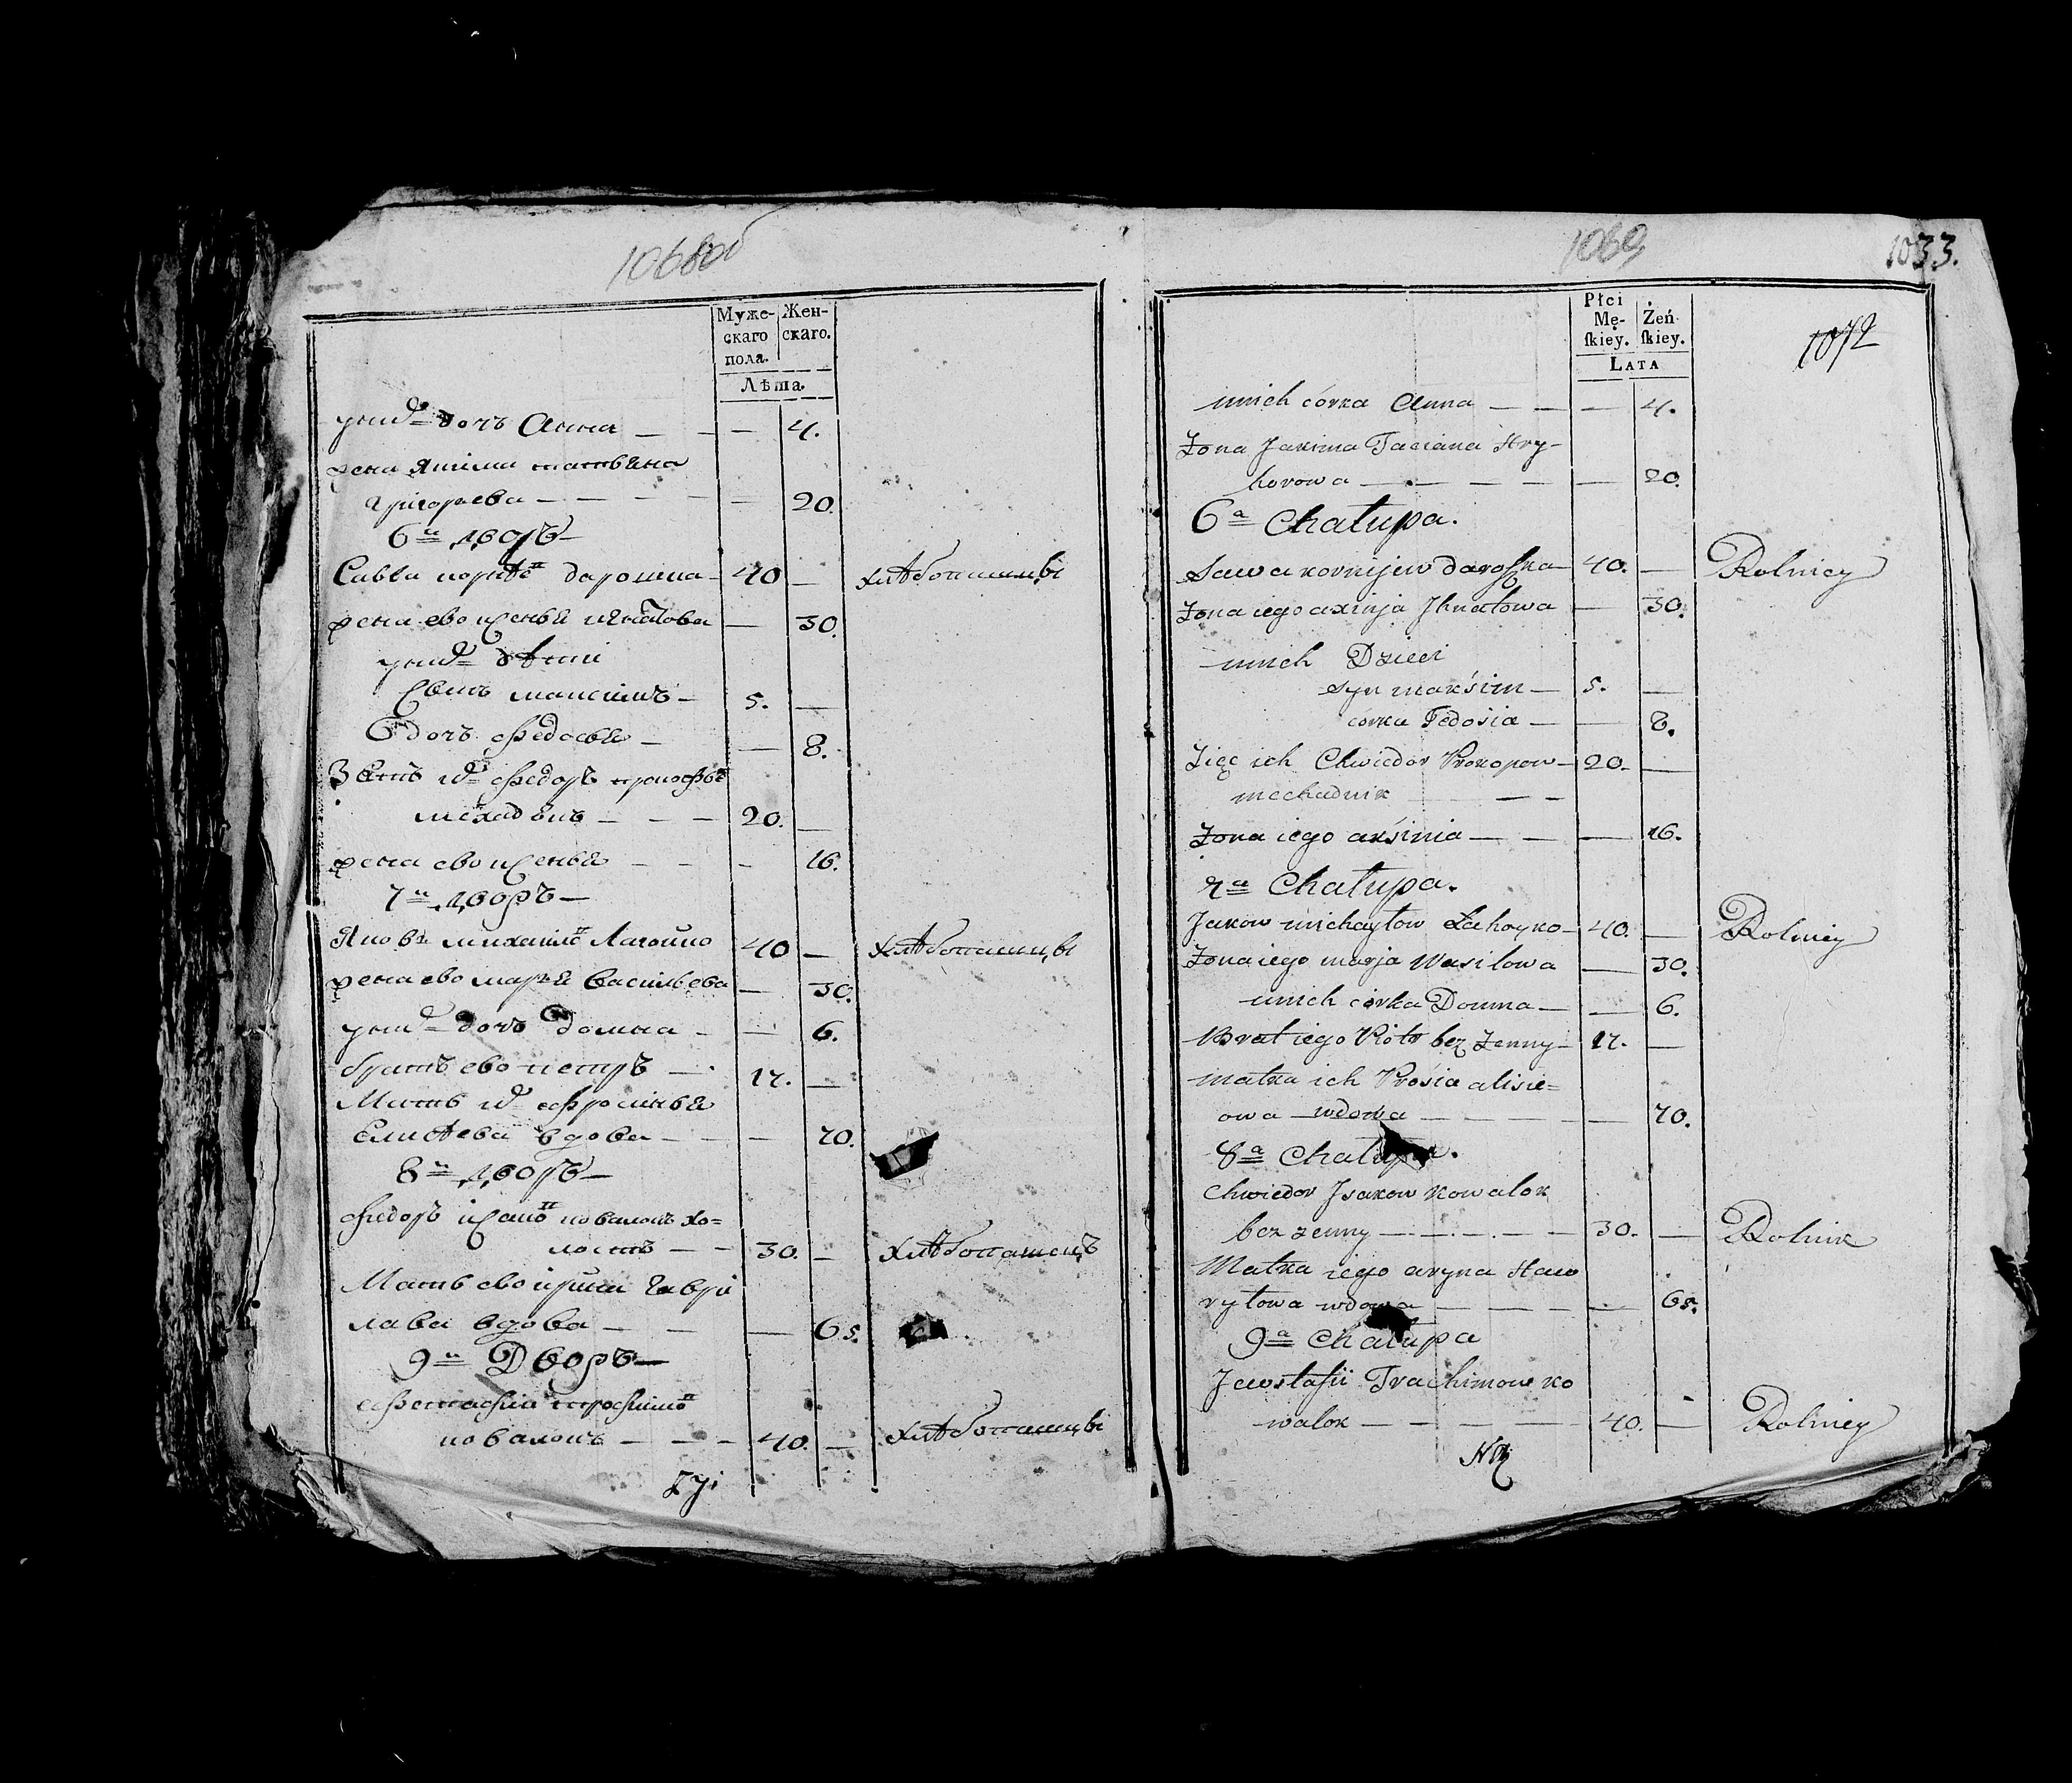 1068об
Муже-
скаго
пола.
Жен-
скаго.
Лѣта.
унихъ дочъ Анна — — — 4.
жена Якима татьяна
григорьева — — — — — 20.
6й дворъ —
Савва дорошка — 40 — хлѣбопашцы
жена ево игнатова — 30.
унихъ дѣти
Сынъ максимъ — 5. —
дочъ федосья — — 8.
Зять ихъ федоръ
— — — 20. —
жена ево — — — 16.
7й дворъ —
Яковъ Лагойко 40 — хлѣбопашцы
жена ево марья васильева — 30.
унихъ дочъ домна — — 6.
братъ ево петръ — 17. —
Мать ихъ
Елисѣева вдова — — — 70.
8й дворъ —
федоръ ковалокъ хо=
лостъ — — 30. — хлѣбопашецъ
Мать ево ирина гаври
лава вдова — — — 65.
9й Дворъ —
ковалокъ — — — 40. — хлѣбопашцы
1069
1033.
1072
Płci
Mę-
skiey.
Żeń-
skiey.
LATA
unich córka Anna — — — 4.
Żona Jakima Taciana Hry-
horowa — — — — — 20.
6a Chałupa.
Sawa kornijew daroszka — 40. — Rolnicy
Żona iego axinja Jhnatowa — 30.
unich Dzieci
syn makśim — 5. —
córka Fedosia — — 8.
Zięc ich Chwiedor Prokopow — 20. —
mechadnik — —
Żona iego akśinia — — — 16.
7a Chałupa.
Jakow michayłow Łahoyko — 40. — Rolnicy
Żona iego marja Wasilowa — 30.
unich córka Domna — — 6.
Brat iego Piotr bez Żenny — 17. —
matka ich Prośia alisie=
owa wdowa — — — — — 70.
8a Chałupa.
Chwiedor Jsakow kowalok
bez zenny — — — — 30. — Rolnik
Matka iego aryna Haw
ryłowa wdowa — — — — 65.
9a Chałupa
Jewstafii Trachimow ko
walok — — — — 40. — Rolnicy